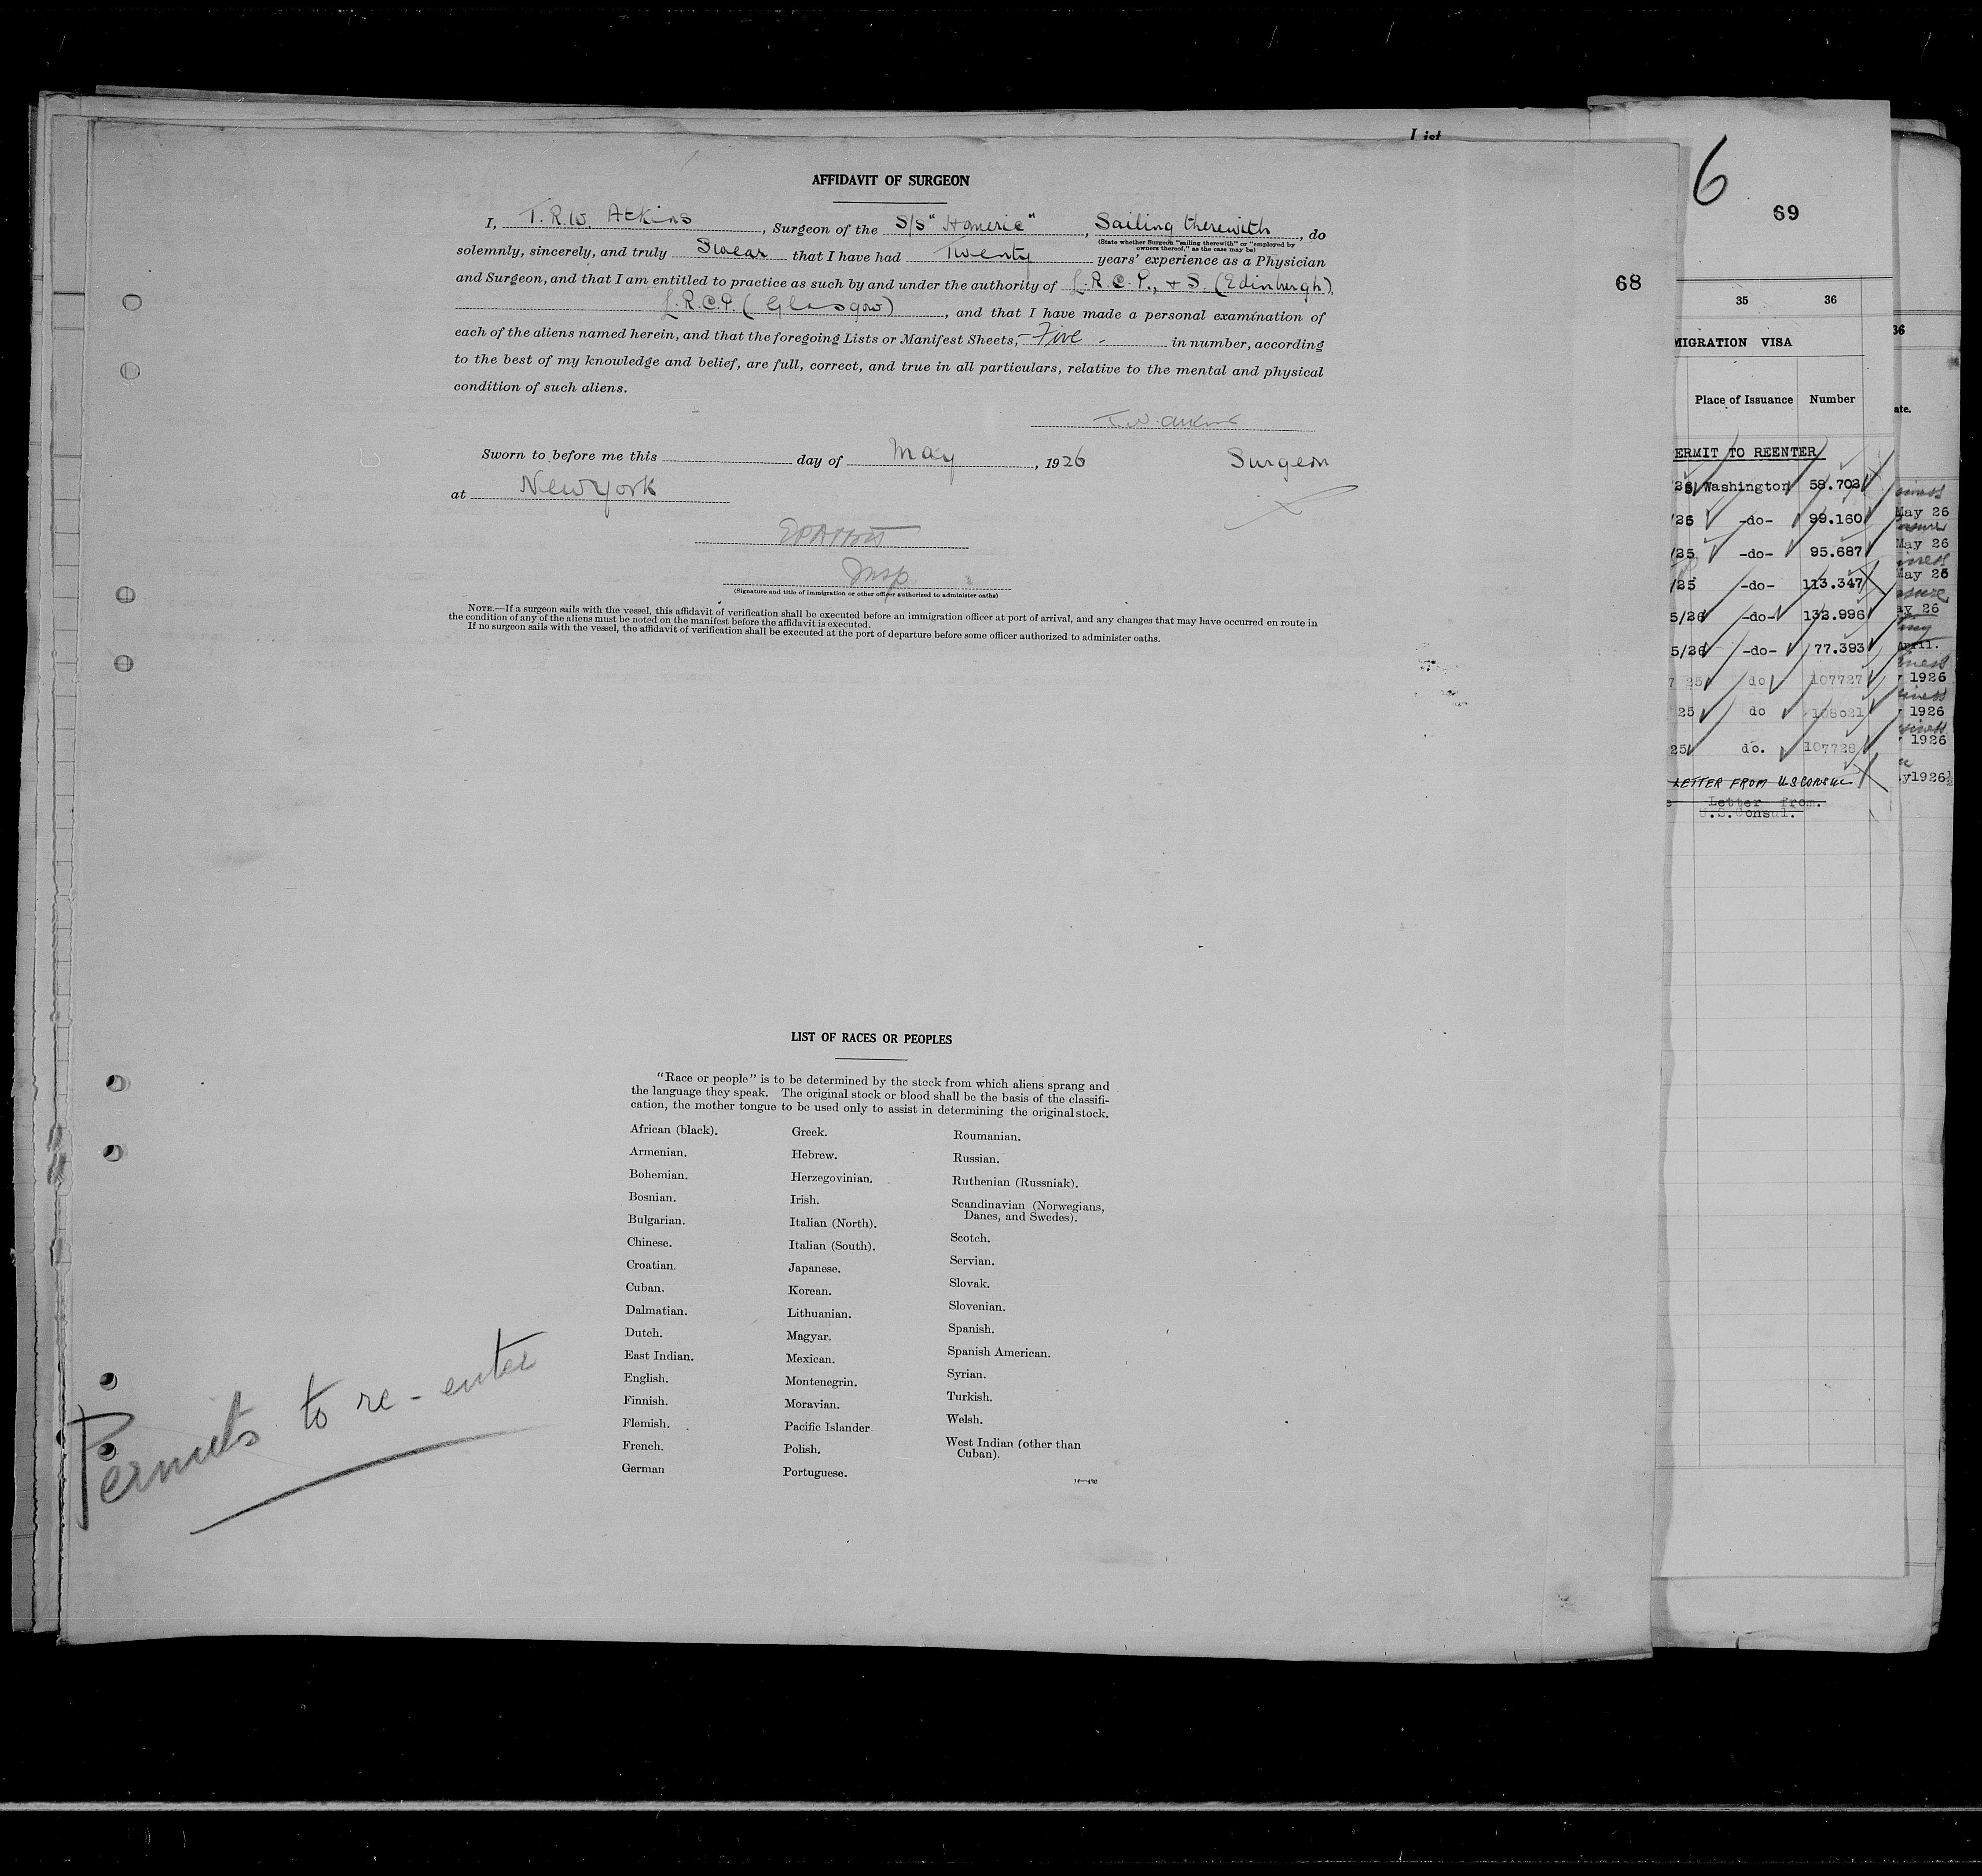 List
AFFIDAVIT OF SURGEON
I, T.R.W. Atkins, Surgeon of the S/S "Homeric", Sailing therewith, do
(State whether Surgeon "sailing therewith" or "employed by
owners thereof," as the case may be)
solemnly, sincerely, and truly Swear that I have had Twenty years' experience as a Physician
and Surgeon, and that I am entitled to practice as such by and under the authority of L.R.C.P., + S. (Edinburgh),
L.R.C.P. (Glasgow), and that I have made a personal examination of
each of the aliens named herein, and that the foregoing Lists or Manifest Sheets, - Five - in number, according
to the best of my knowledge and belief, are full, correct, and true in all particulars, relative to the mental and physical
condition of such aliens.
Sworn to before me this day of May, 1926
Surgeon
at New York
Insp
(Signature and title of immigration or other officer authorized to administer oaths)
NOTE.—If a surgeon sails with the vessel, this affidavit of verification shall be executed before an immigration officer at port of arrival, and any changes that may have occurred en route in
the condition of any of the aliens must be noted on the manifest before the affidavit is executed.
If no surgeon sails with the vessel, the affidavit of verification shall be executed at the port of departure before some officer authorized to administer oaths.
LIST OF RACES OR PEOPLES
"Race or people" is to be determined by the stock from which aliens sprang and
the language they speak. The original stock or blood shall be the basis of the classifi-
cation, the mother tongue to be used only to assist in determining the original stock.
African (black).
Armenian.
Bohemian.
Bosnian.
Bulgarian.
Chinese.
Croatian.
Cuban.
Dalmatian.
Dutch.
East Indian.
English.
Finnish.
Flemish.
French.
German
Greek.
Hebrew.
Herzegovinian.
Irish.
Italian (North).
Italian (South).
Japanese.
Korean.
Lithuanian.
Magyar.
Mexican.
Montenegrin.
Moravian.
Pacific Islander
Polish.
Portuguese.
Roumanian.
Russian.
Ruthenian (Russniak).
Scandinavian (Norwegians,
Danes, and Swedes).
Scotch.
Servian.
Slovak.
Slovenian.
Spanish.
Spanish American.
Syrian.
Turkish.
Welsh.
West Indian (other than
Cuban).
Permits to re-enter
68
6
69
35 36
MIGRATION VISA
Place of Issuance Number
ERMIT TO REENTER
Washington 58.703
/26 -do- 99.160
/25 -do- 95.687
/25 -do- 113.347
5/26 -do- 132.996
5/26 -do- 77.393
25 do 107727
25 do 108021
25 do. 107728
LETTER FROM U S CONSUL
Letter from.
U.S.Consul.
36
ate.
May 26
May 26
May 26
ay 26
April.
1926
1926
1926
y1926